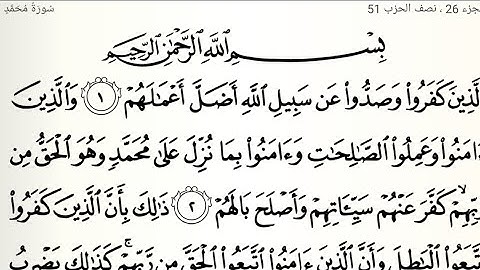 سُورَةُ مُحَمَّدٍ
جزء 26 ، نصف الحزب 51
بِسْمِ اللَّهِ الرَّحْمَٰنِ الرَّحِيمِ
لَّذِينَ كَفَرُوا۟ وَصَدُّوا۟ عَن سَبِيلِ اللَّهِ أَضَلَّ أَعْمَٰلَهُمْ ١ وَالَّذِينَ
ءَامَنُوا۟ وَعَمِلُوا۟ الصَّٰلِحَٰتِ وَءَامَنُوا۟ بِمَا نُزِّلَ عَلَىٰ مُحَمَّدٍ وَهُوَ الْحَقُّ مِن
بِّهِمْ ۙ كَفَّرَ عَنْهُمْ سَيِّـَٔاتِهِمْ وَأَصْلَحَ بَالَهُمْ ٢ ذَٰلِكَ بِأَنَّ الَّذِينَ كَفَرُوا۟
تَّبَعُوا۟ الْبَٰطِلَ وَأَنَّ الَّذِينَ ءَامَنُوا۟ اتَّبَعُوا۟ الْحَقَّ مِن رَّبِّهِمْ ۚ كَذَٰلِكَ يَضْرِبُ